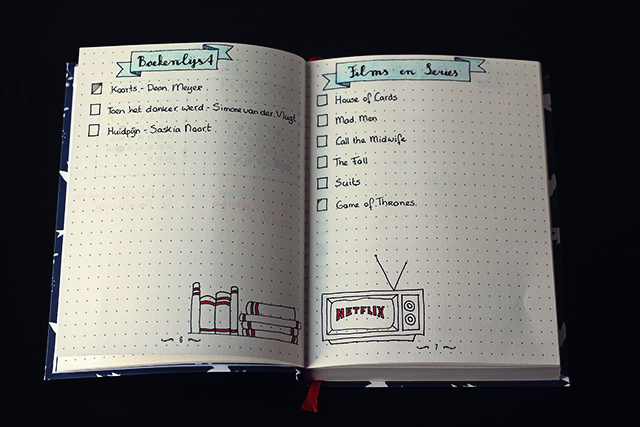 Boekenlijst
Koorts - Deon Meyer
Toen het donker werd - Simone van der Vlugt
Huidpijn - Saskia Noort
6
Films en Series
House of Cards
Mad Men
Call the Midwife
The Fall
Suits
Game of Thrones
NETFLIX
7